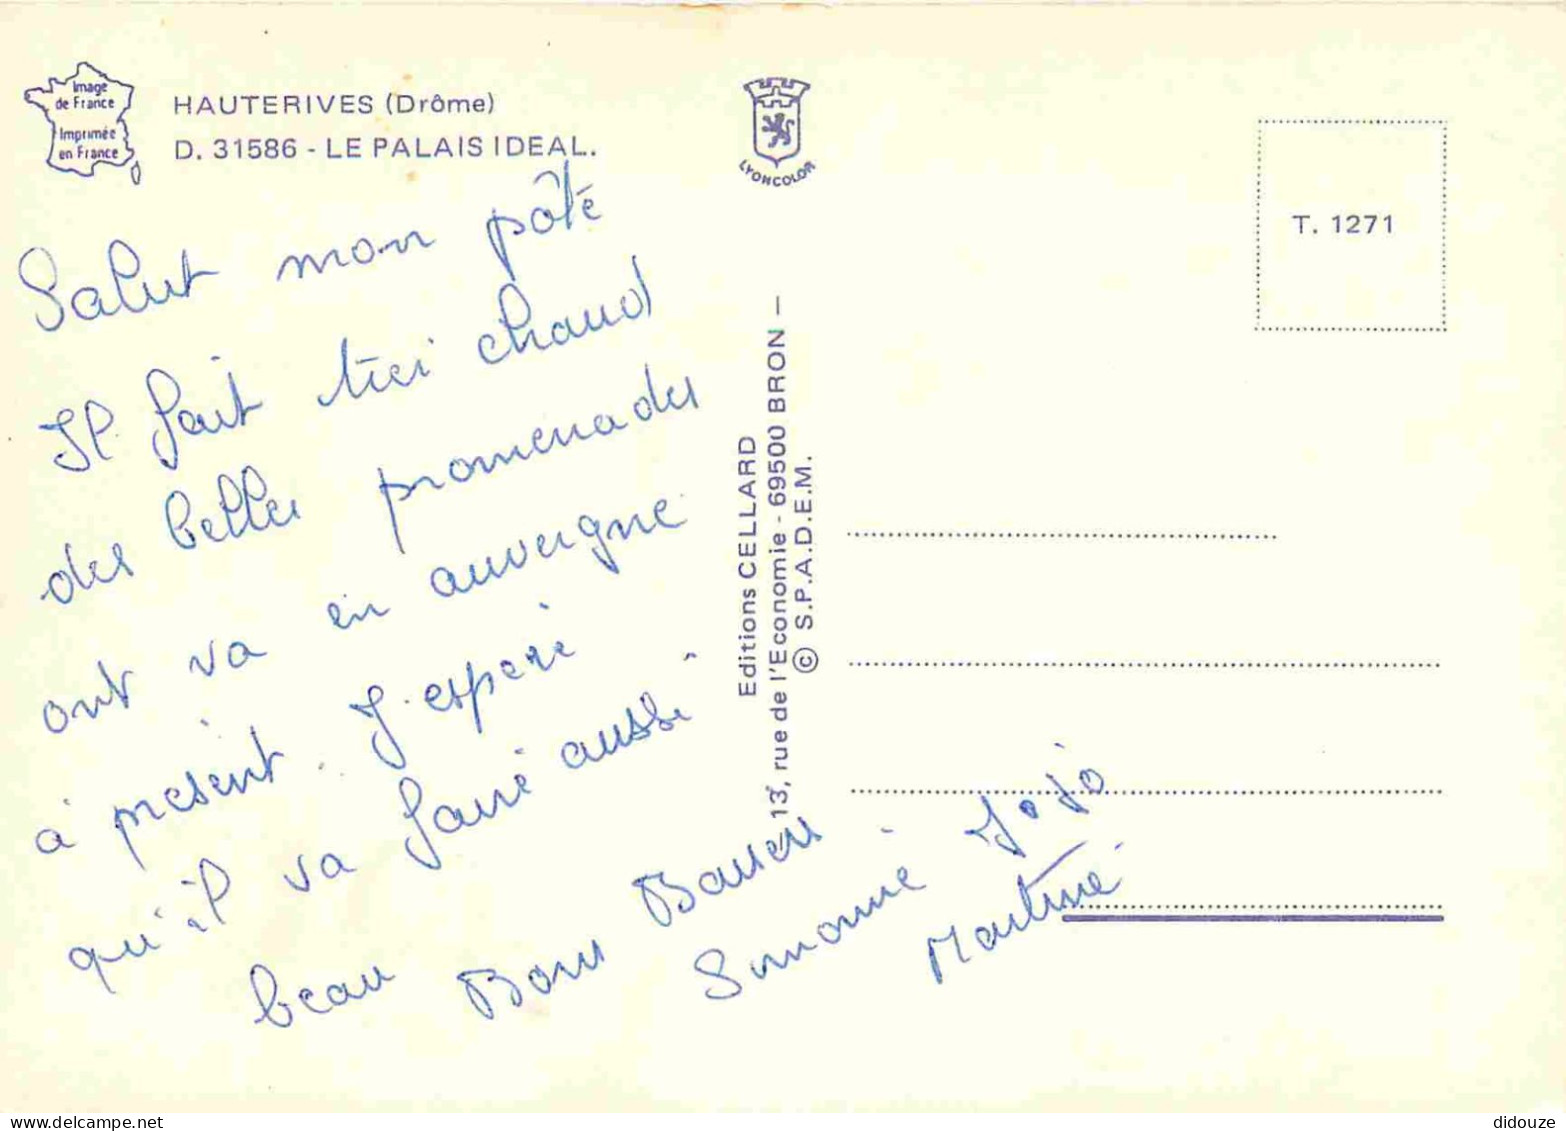 Image
de France
Imprimée
en France
HAUTERIVES (Drôme)
D. 31586 - LE PALAIS IDEAL.
LYONCOLOR
T. 1271
Salut mon pôte
Il fait tres chaud
des belles promenades
ont va en auvergne
à present. J'espere
qu'il va faire aussi
beau Bons Baisers
Simonne Jojo
Martine
Editions CELLARD
13, rue de l'Economie - 69500 BRON -
© S.P.A.D.E.M.
didouze